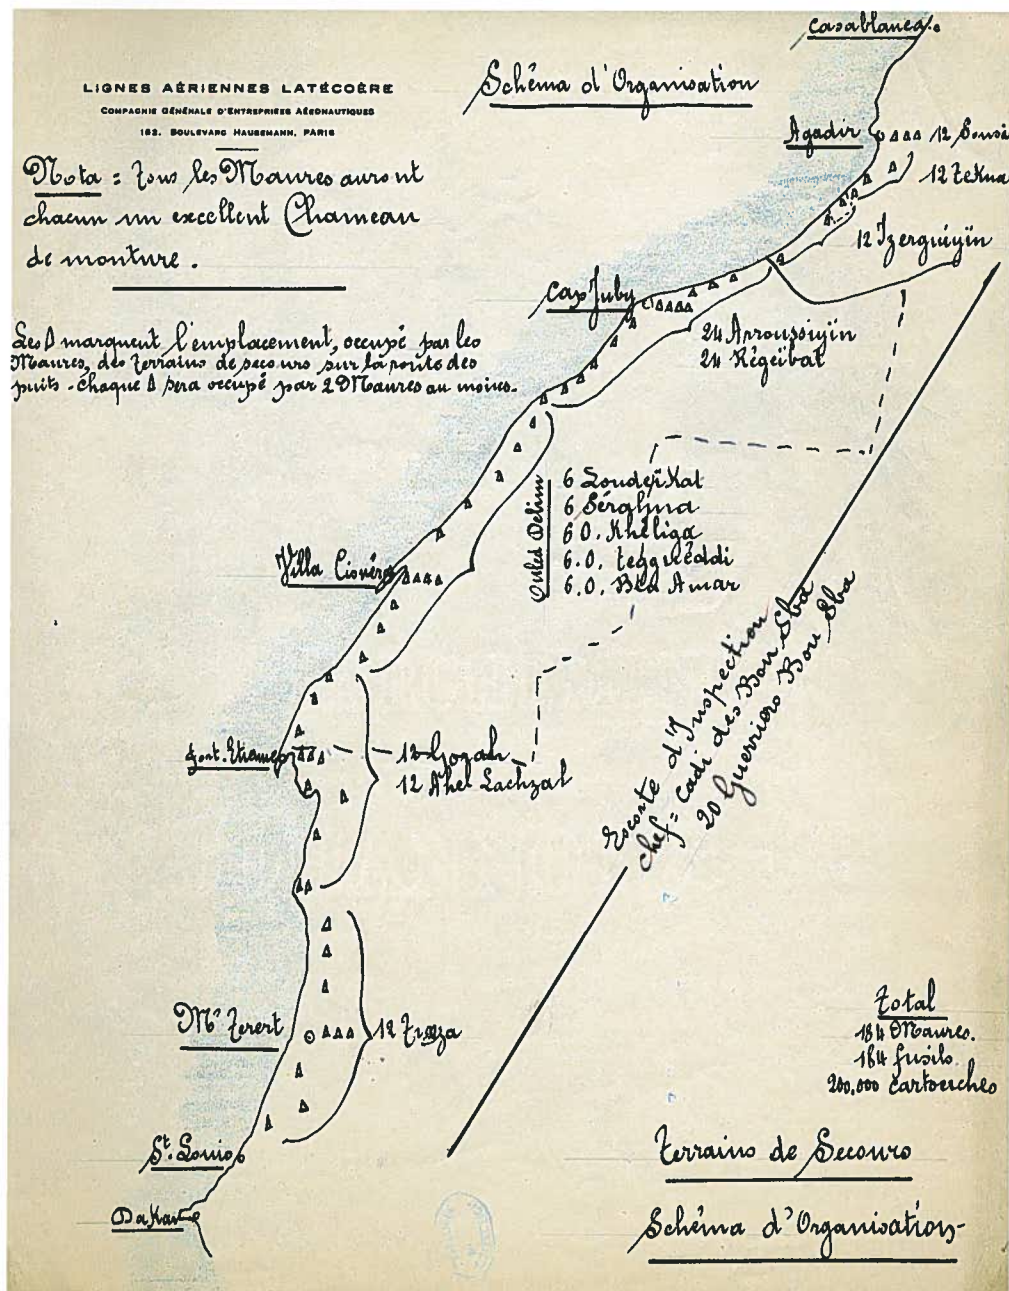 Casablanca
LIGNES AÉRIENNES LATÉCOÈRE
COMPAGNIE GÉNÉRALE D'ENTREPRISES AÉRONAUTIQUES
182, BOULEVARD HAUSSMANN, PARIS
Schéma d'Organisation
Nota = Tous les Maures auront
chacun un excellent Chameau
de monture.
Les Δ marquent l'emplacement, occupé par les
Maures, des terrains de secours sur la route des
puits - chaque Δ sera occupé par 2 Maures au moins.
Agadir
12
12 Tekna
12 Izerguiyin
Cap Juby
24 Arroussiyin
24 Régeibat
Ouled Delim
6 Loudeïkat
6 Serghna
6 O. Khéliga
6. O. Teggueddi
6. O. Amar
Villa Cisnéros
Port. Etienne
12
12 Ahel Lachzal
Escorte d'Inspection
chef = cadi des Bou Sba
20 Guerriers Bou Sba
Mt Terert
12
St. Louis
Dakar
Total
184 Maures.
184 fusils
200.000 cartouches
Terrains de Secours
Schéma d'Organisation-